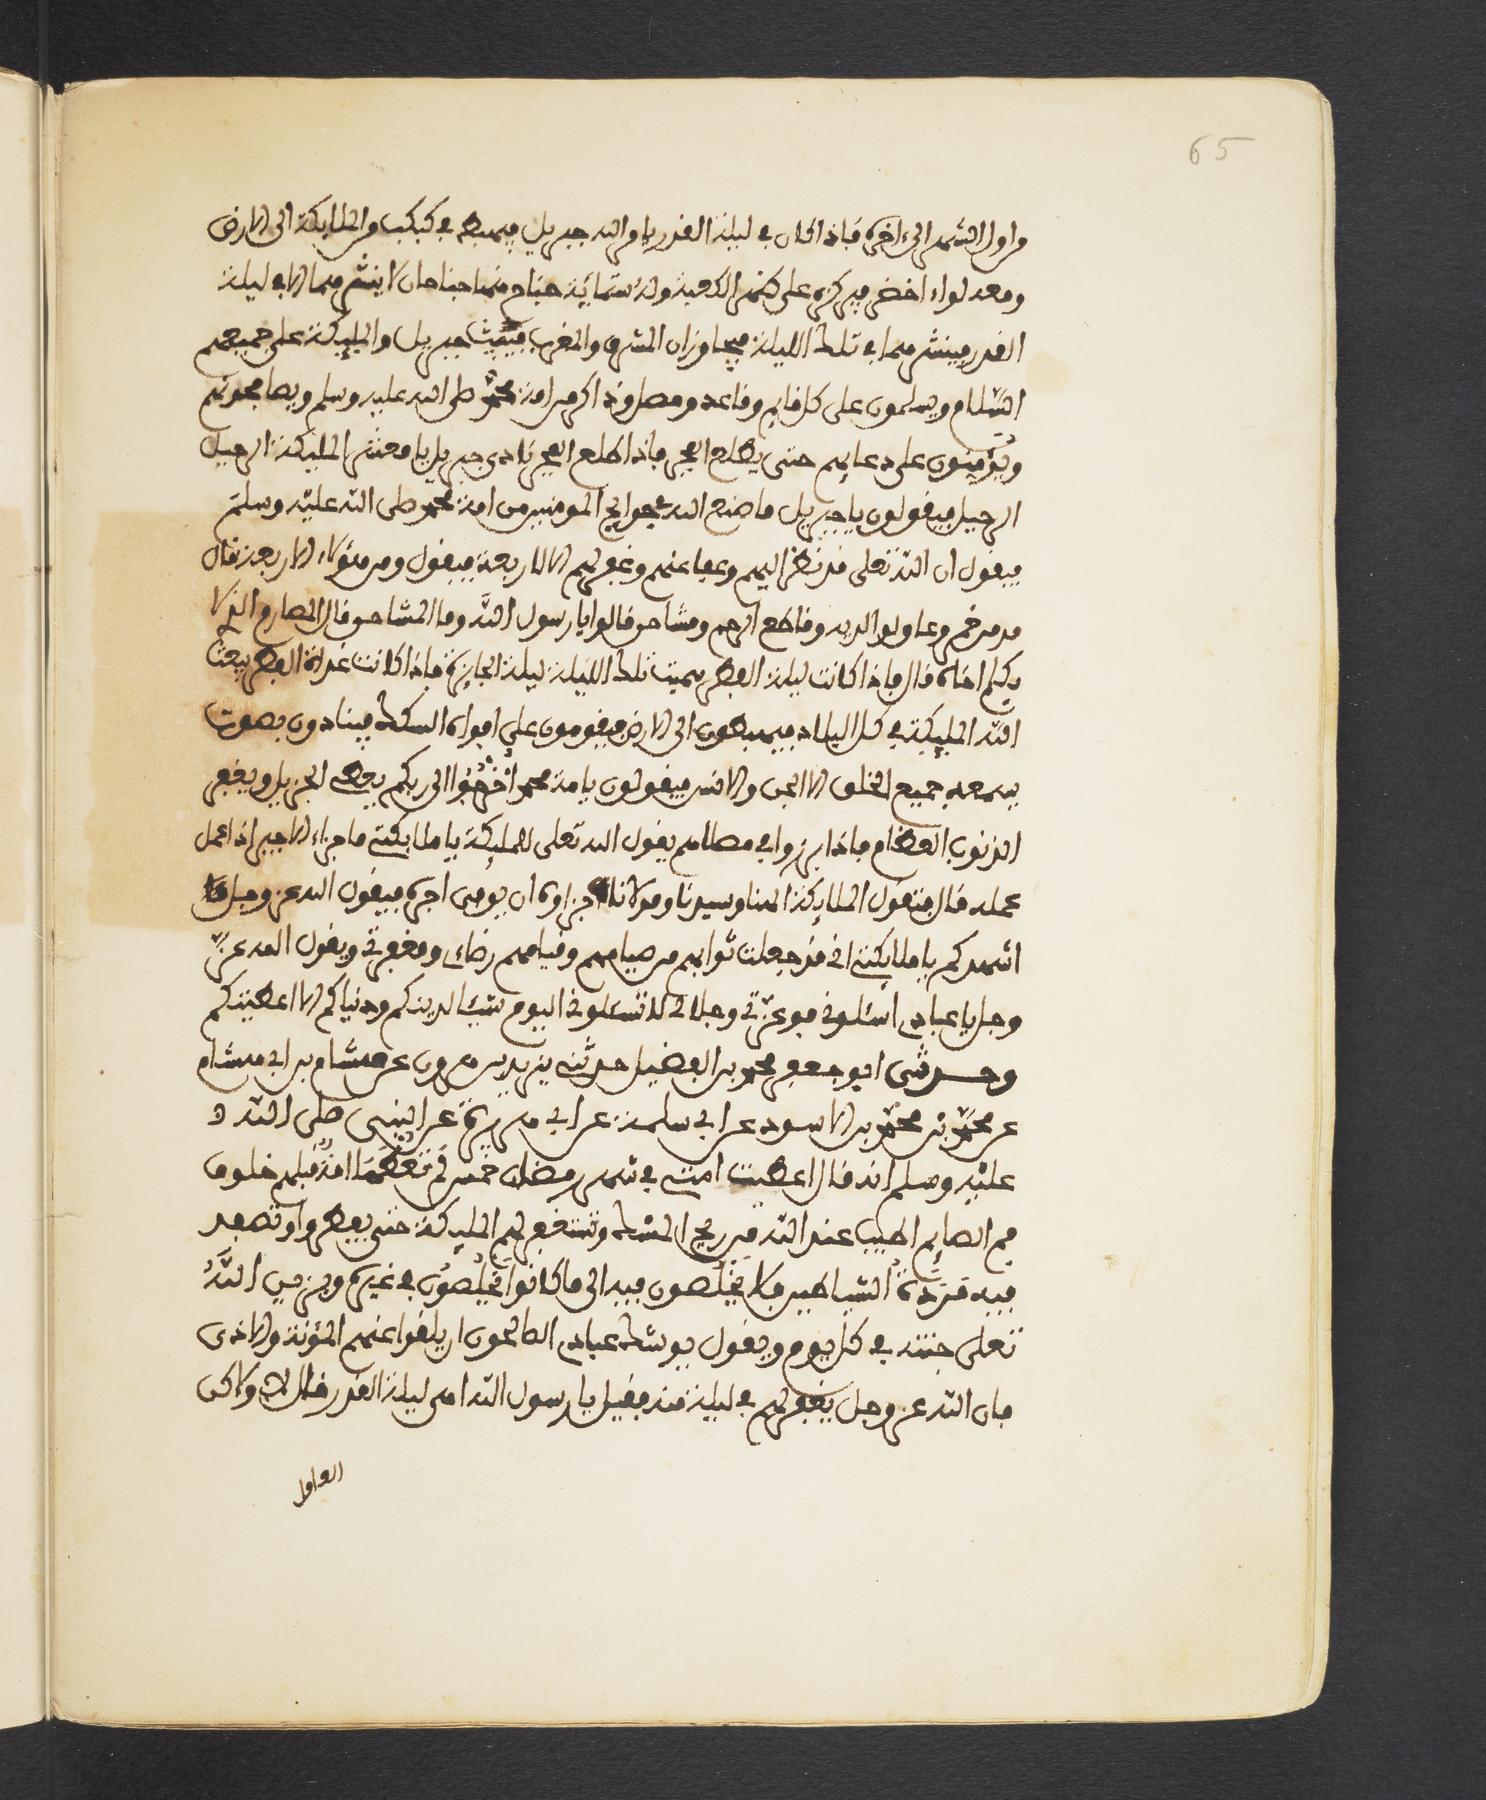 65
من اول الشهر الى اخره فاذا كان في ليلة القدر يامر الله جبريل فيهبط في كبكب من الملايكة الى الارض
ومعه لواء اخضر فيركزه على ظهر الكعبة وله ستمائة جناح منها جناحان لا ينشرهما الا في ليلة
القدر فينشرهما في تلك الليلة فيجاوزان المشرق والمغرب فيبيث جبريل والمليكة على جميعهم
السلام ويسلمون على كل قايم وقاعد ومصل وذاكر من امة محمد صلى الله عليه وسلم ويصافحونهم
ويؤمنون على دعايهم حتى يطلع الفجر فاذا طلع الفجر نادى جبريل يا معشر المليكة الرحيل
الرحيل فيقولون يا جبريل ما صنع الله بحوايج المومنين من امة محمد صلى الله عليه وسلم
فيقول ان الله تعلى قد نظر اليهم وعفا عنهم وغفر لهم الا لاربعة فيقول ومن هؤلاء الاربعة قال
مدمن خمر وعاق لوالديه وقاطع الرحم ومشاحن قالوا يا رسول الله وما المشاحن قال المصارم الذي لا
يكلم اخاه قال فاذا كانت ليلة الفطر سميت تلك الليلة ليلة الجايزة فاذا كانت غداة الفطر يبعث
الله المليكة في كل البلاد فيهبطون الى الارض فيقومون على افواه السكك فينادون بصوت
يسمعه جميع الخلق الا الجن والانس فيقولون يامة محمد اخرجوا الى ربكم يعطي الجزيل ويغفر
الذنوب العظام فاذا برزوا في مصلاهم يقول الله تعلى للمليكة يا ملايكتي ما جزاء الاجير اذا عمل
عمله قال فتقول الملايكة الهنا وسيدنا ومولانا جزاوه ان يوفى اجره فيقول الله عز وجل
اشهدكم يا ملايكتي اني قد جعلت ثوابهم من صيامهم وقيامهم رضاي ومغفرتي ويقول الله عز
وجل يا عبادي اسئلوني فوعزتي وجلالي لا تسئلوني اليوم شيئا لدينكم ودنياكم الا اعطيتكم
وحدثني ابو جعفر محمد بن الفضيل حدثني يزيد بن هرون عن هشام بن ابي هشام
عن محمد بن محمد بن الاسود عن ابي سلمة عن ابي هريرة عن النبي صلى الله
عليه وسلم انه قال اعطيت امتي في شهر رمضان خمس لم تعطهما امة قبلهم خلوف
فم الصايم اطيب عند الله من ريح المسك وتستغفر لهم المليكة حتى يفطروا وتصفد
فيه مردة الشياطين فلا يخلصون فيه الى ما كانوا يخلصون في غيره ويزين الله
تعلى جنته في كل يوم ويقول يوشك عبادي الصالحون ان يلقوا عنهم المؤنة والاذى
فان الله عز وجل يغفر لهم في ليلة منه فقيل يا رسول الله اهي ليلة القدر قال لا ولاكن
العامل